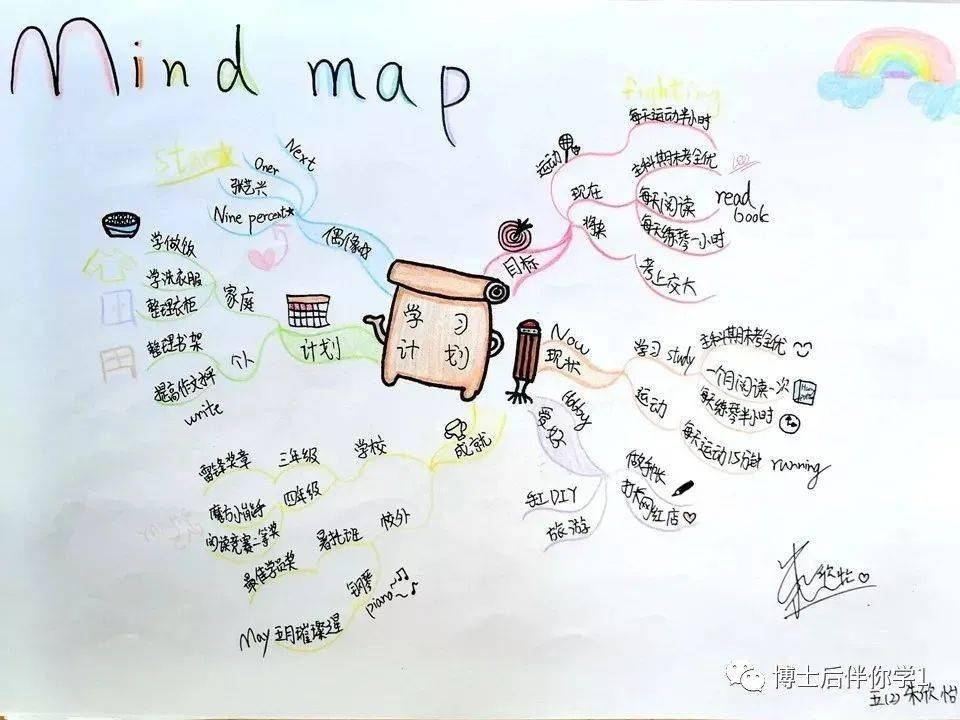 Mind map
fighting
star
Next
Oner
张艺兴
Nine percent
偶像
学做饭
学洗衣服
整理衣柜
家庭
整理书架
个人
write
计划
学习
计划
目标
运动
每天运动半小时
现在
主科期末考全优
每天阅读
read
book
每天练琴一小时
将来
考上交大
Now
现状
学习 study
主科期末考全优
一个月阅读一次
运动
每天练琴半小时
每天运动15分钟 running
Hobby
爱好
做手帐
打卡网红店
DIY
旅游
成就
学校
三年级
雷锋奖章
四年级
魔方小能手
阅读竞赛二等奖
校外
暑托班
最佳学员奖
钢琴
piano
May 五月璀璨星
欣怡
博士后伴你学1
五(2) 朱欣怡